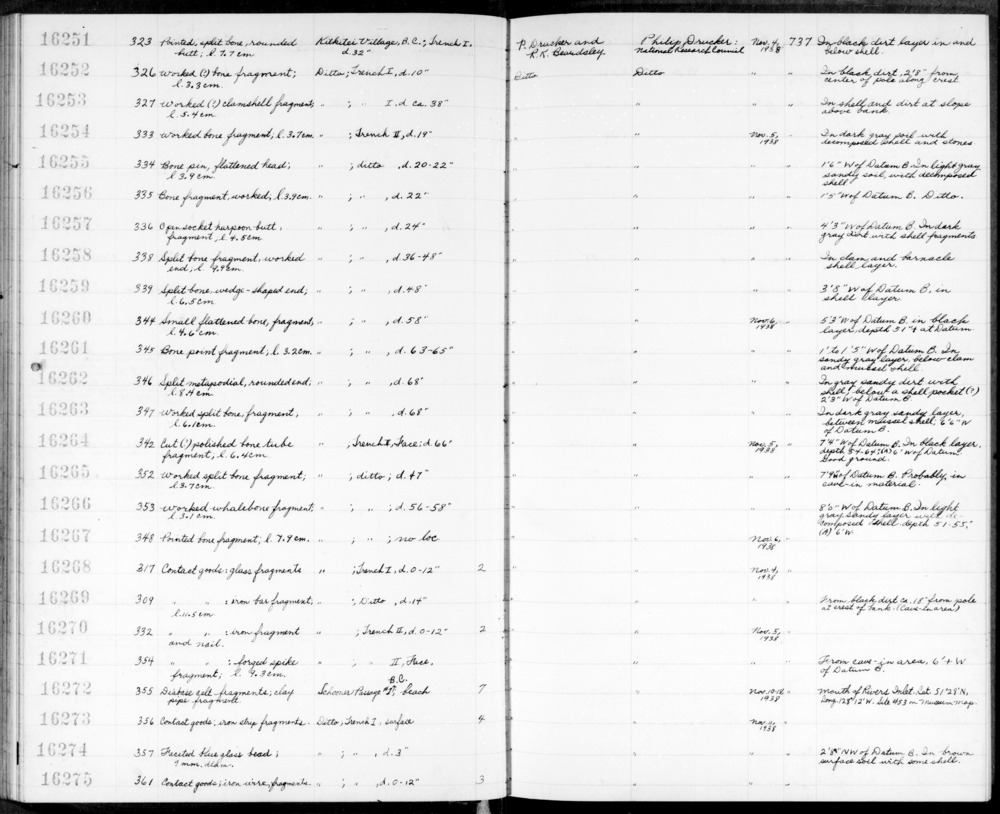 16251 323 Pointed, split bone, rounded Kilkitei Village, B.C.; Trench I, P. Drucker and Philip Drucker: Nov. 4, 737 In black dirt layer in and
butt; l. 7.7 cm. d. 32" R.K. Beardsley. National Research Council 1938 below shell.
16252 326 Worked (?) bone fragment; Ditto; Trench I, d. 10" Ditto Ditto " " In black dirt, 2'8" from
l. 3.3 cm. center of pole along crest
16253 327 Worked (?) clamshell fragment; " ; " I. d. ca. 38" " " " " In shell and dirt at slope
l. 5.4 cm. above bank.
16254 333 Worked bone fragment; l. 3.7 cm. " ; Trench II, d. 19" " " Nov. 5, " In dark gray soil with
1938 decomposed shell and stones
16255 334 Bone pin, flattened head; " ; ditto , d. 20-22" " " " " 1'6" W of Datum B. In light gray
l. 3.9 cm. sandy soil, with decomposed
shell
16256 335 Bone fragment, worked, l. 3.9 cm. " ; " , d. 22" " " " " 1'5" W of Datum B. Ditto.
16257 336 Open socket harpoon butt, " ; " , d. 24" " " " " 4'3" W of Datum B. In dark
fragment, l. 4.5 cm gray dirt with shell fragments
16258 338 Split bone fragment, worked " ; " , d. 36-48" " " " " In clam and barnacle
end; l. 9.9 cm. shell layer.
16259 339 Split bone, wedge-shaped end; " ; " , d. 48" " " " " 3'8" W of Datum B, in
l. 6.5 cm shell layer
16260 344 Small flattened bone, fragment, " ; " , d. 58" " " Nov. 6, " 5'3" W of Datum B. in black
l. 4.6 cm 1938 layer, depth 51"+ at Datum
16261 345 Bone point fragment; l. 3.2 cm. " ; " , d. 63-65" " " " " 1' to 1'5" W of Datum B. In
sandy gray layer, below clam
and mussel shell
16262 346 Split metapodial, rounded end; " ; " , d. 68" " " " " In gray sandy dirt with
l. 8.4 cm shell, below a shell pocket (?)
2'3" W of Datum B
16263 347 Worked split bone, fragment, " ; " , d. 68" " " " " In dark gray sandy layer,
l. 6.1 cm. between mussel shell; 6'6" W
of Datum B.
16264 342 Cut (?) polished bone tube " ; Trench II, Face; d. 66" " " Nov. 5, " 7'4" W of Datum B. In black layer,
fragment; l. 6.4 cm. 1938 depth 54-64"; (A) 6' W of Datum.
Good ground.
16265 352 Worked split bone fragment; " ; ditto ; d. 47" " " " " 7'9" W of Datum B. Probably, in
l. 3.7 cm. cave-in material.
16266 353 Worked whalebone fragment; " ; " ; d. 56-58" " " " " 8'6" W of Datum B. In light
l. 3.1 cm. gray sandy layer with de-
composed shell depth 51-55,"
(A) 6' W.
16267 348 Pointed bone fragment; l. 7.9 cm. " ; " ; no loc. " " Nov. 6, "
1938
16268 317 Contact goods: glass fragments " ; Trench I, d. 0-12" 2 " " Nov. 4, "
1938
16269 309 " " : iron bar fragment; " ; Ditto , d. 14" " " " " From black dirt ca. 18" from pole
l. 11.5 cm at crest of bank. (Cave-in area)
16270 332 " " : iron fragment " ; Trench II, d. 0-12" 2 " " Nov. 5, "
and nail. 1938
16271 354 " " : forged spike " ; " II, Face, " " " " From cave-in area, 6'+ W
fragment; l. 9.3 cm. of Datum B.
16272 355 Diabase celt fragments; clay Schooner Passage #1, B.C.; beach 7 " " Nov. 10-12, " Mouth of Rivers Inlet. Lat. 51°28'N,
pipe fragment 1938 Long. 128°12'W. Site #53 on Museum map.
16273 356 Contact goods; iron strip fragments. Ditto; Trench I, surface 4 " " Nov. 11, "
1938
16274 357 Faceted blue glass bead; " ; " , d. 3" " " " " 2'8" NW of Datum B. In brown
9 mm. diam. surface soil with some shell.
16275 361 Contact goods; iron wire, fragments. " ; " , d. 0-12" 3 " " " "